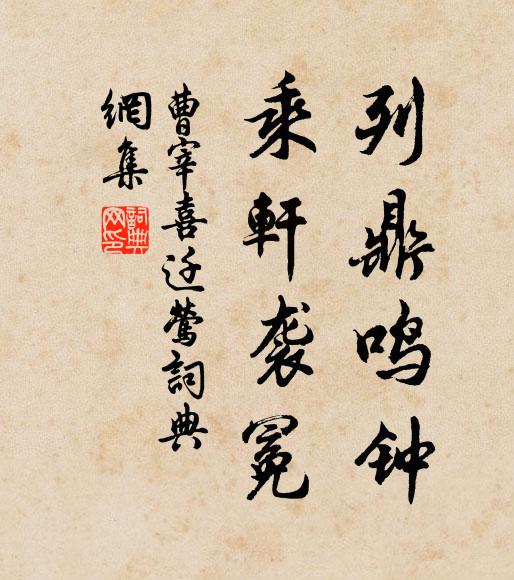 列鼎鸣钟
乘軒袭冕
曹宰喜迁莺詞典
網集
詞典
网印